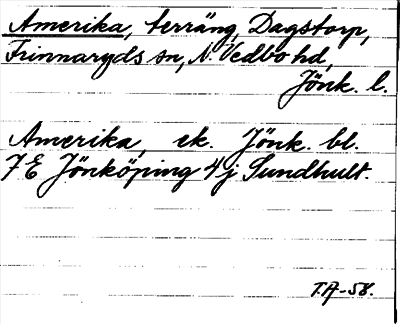 Amerika, terräng, Dagstorp,
Frinnaryds sn, N. Vedbo hd,
Jönk. l.
Amerika, ek. Jönk. bl.
7 E Jönköping 4j Sundhult.
T.A-58.